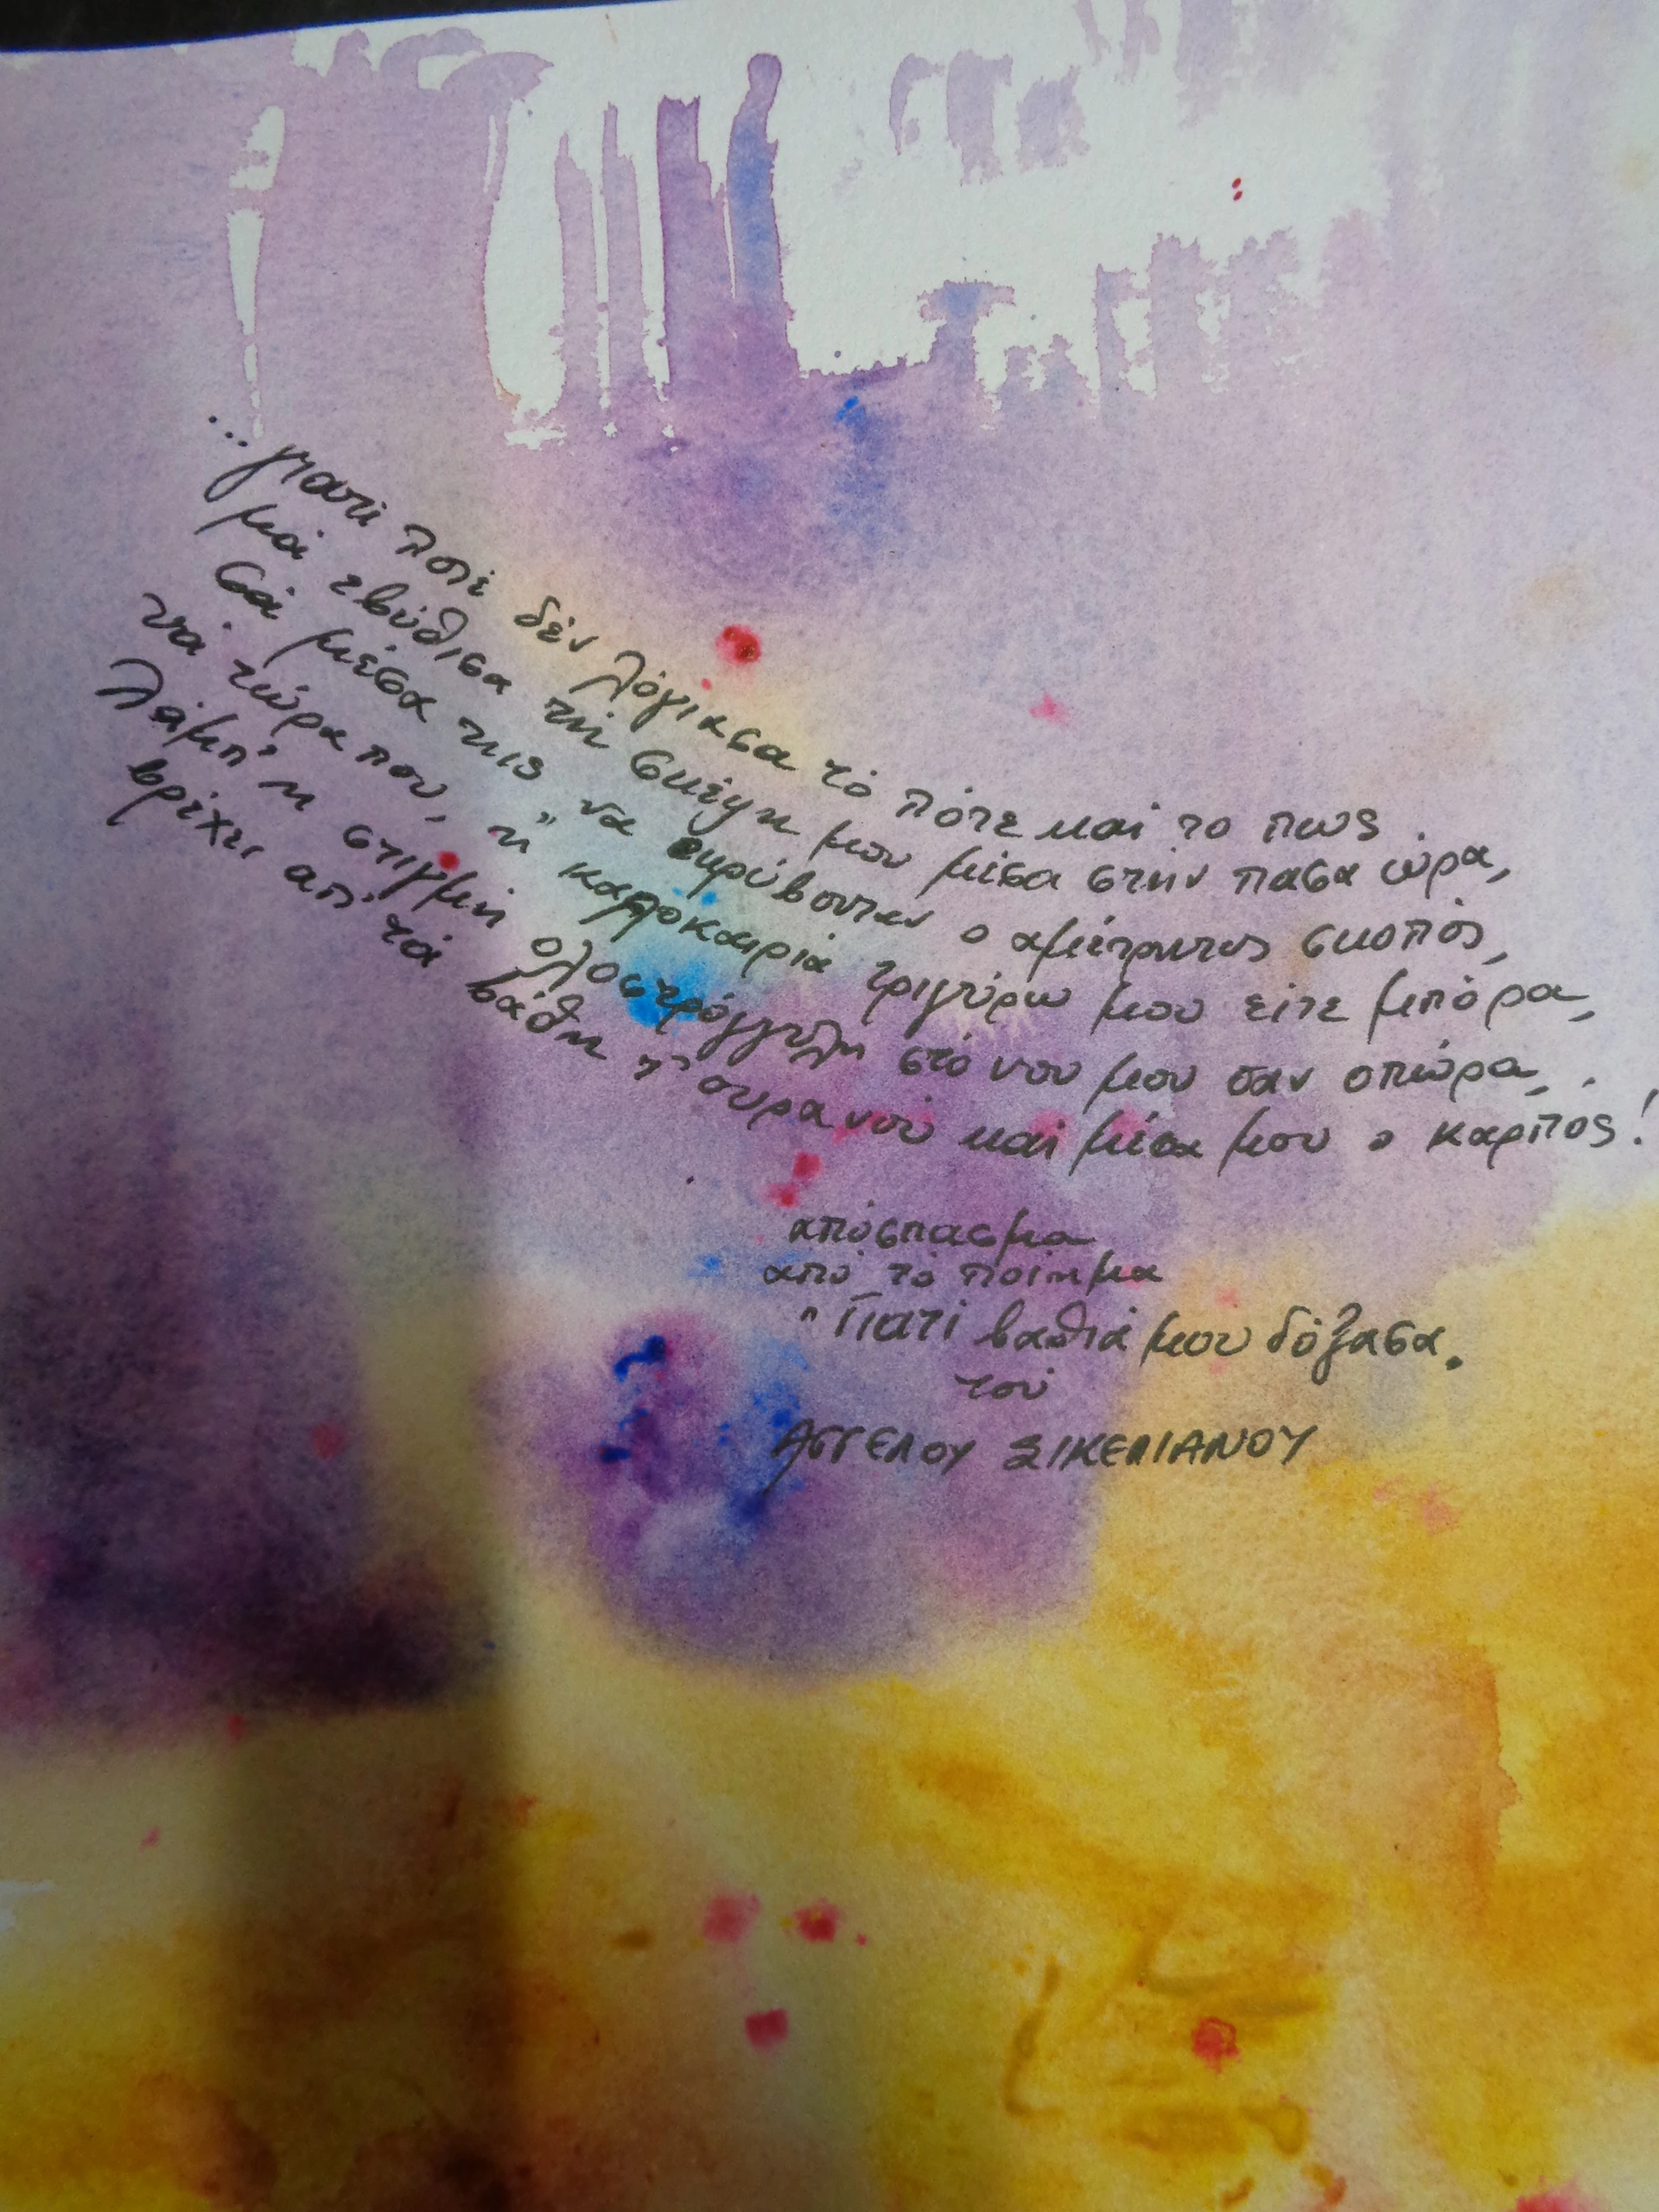 ...γιατί ποτέ δέν λόγιασα τό πότε καί το πως
μά εβύθισα τή σκέψη μου μέσα στήν πάσα ώρα,
σά μέσα της να εκρύβονταν ο αμέτρητος σκοπός,
νά τώρα που, ή καλοκαιριά τριγύρω μου είτε μπόρα,
λάμπ' η στιγμή ολοστρόγγυλη στό νου μου σαν οπώρα,
βρέχει απ' τά βάθη τ' ουρανού καί μέσα μου ο καρπός!
απόσπασμα
από τό ποίημα
"Γιατί βαθιά μου δόξασα.
τού
ΑΓΓΕΛΟΥ ΣΙΚΕΛΙΑΝΟΥ